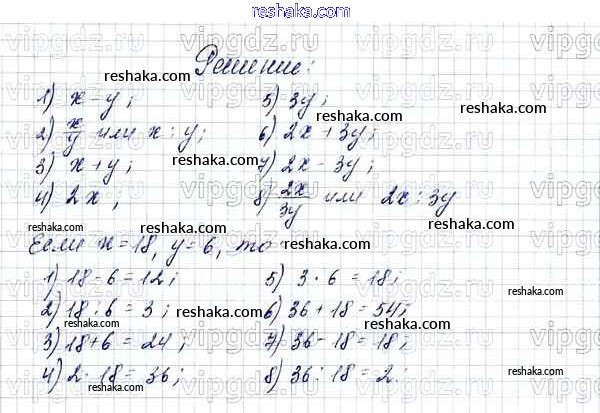 reshaka.com
Решение:
1) x - y; 5) 3y;
2) x/y или x : y; 6) 2x + 3y;
3) x + y; 7) 2x - 3y;
4) 2x; 8) 2x/3y или 2x : 3y
Если x = 18, y = 6, то
1) 18 - 6 = 12; 5) 3 · 6 = 18;
2) 18 : 6 = 3; 6) 36 + 18 = 54;
3) 18 + 6 = 24; 7) 36 - 18 = 18;
4) 2 · 18 = 36; 8) 36 : 18 = 2.
vipgdz.ru
reshaka.com